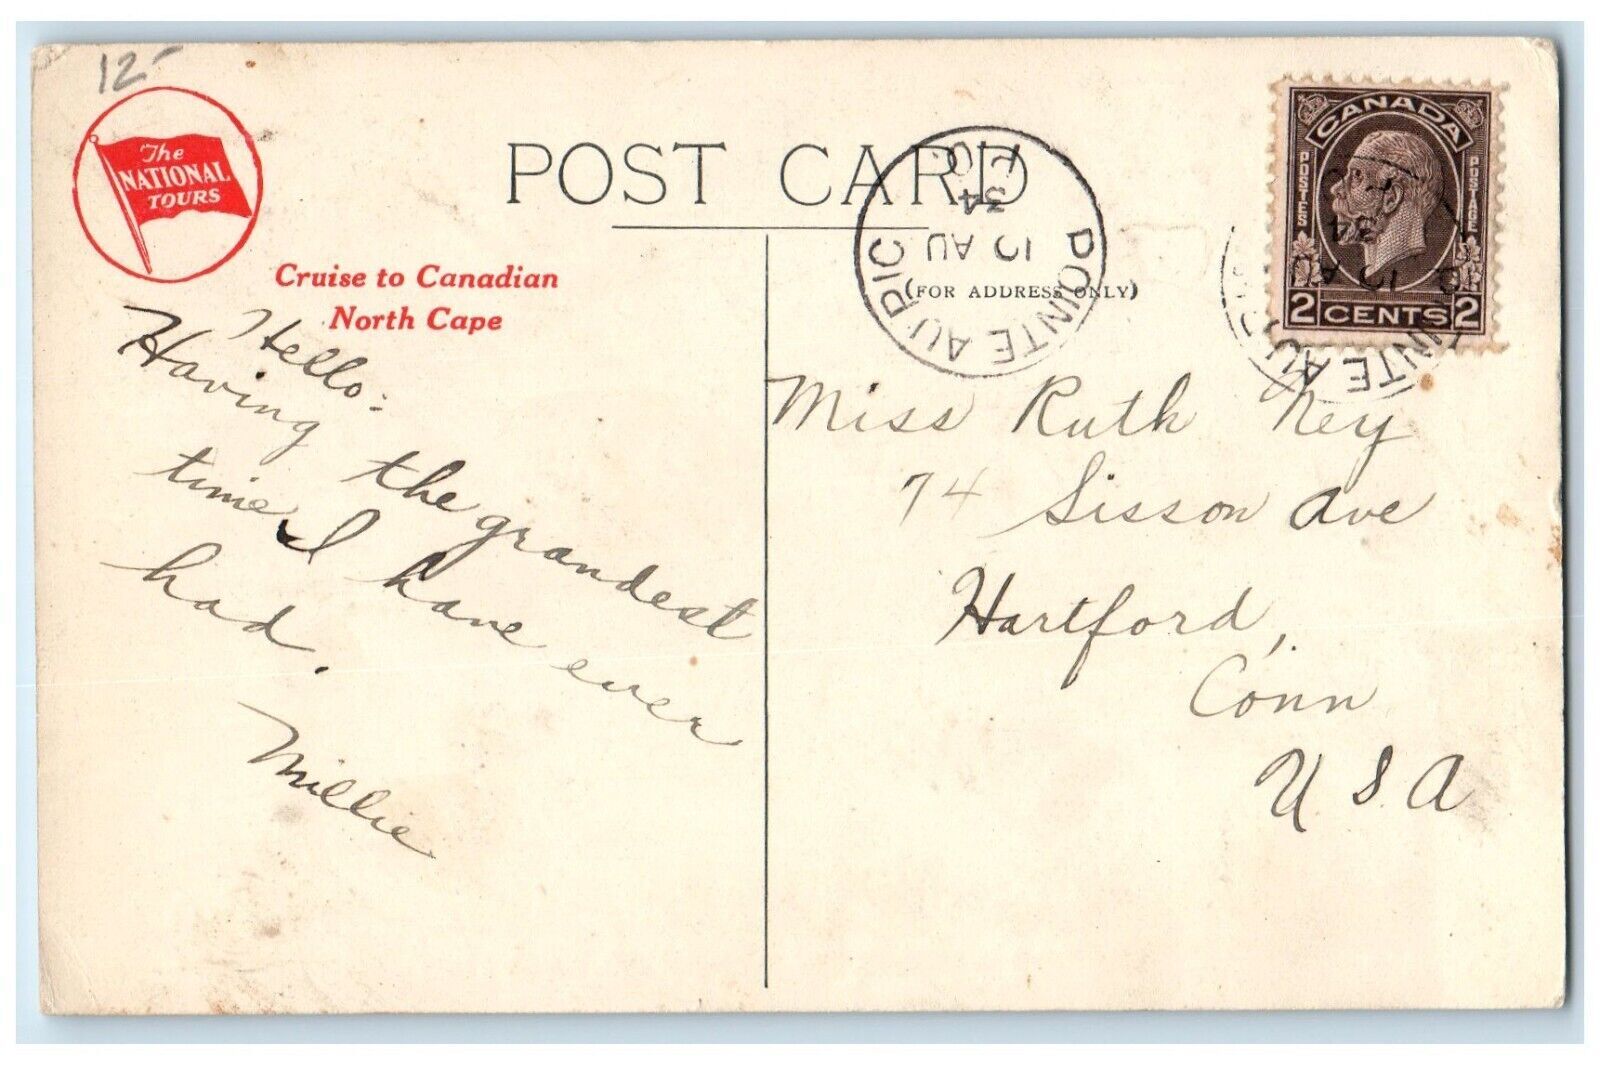 12-
The
NATIONAL
TOURS
Cruise to Canadian
North Cape
POST CARD
(FOR ADDRESS ONLY)
POINTE AU PIC
AU
34
CANADA
POSTES
POSTAGE
2 CENTS 2
AU
34
Hello:
Having the grandest
time I have ever
had.
Millie
Miss Ruth Ney
74 Sisson Ave
Hartford,
Conn
U S. A